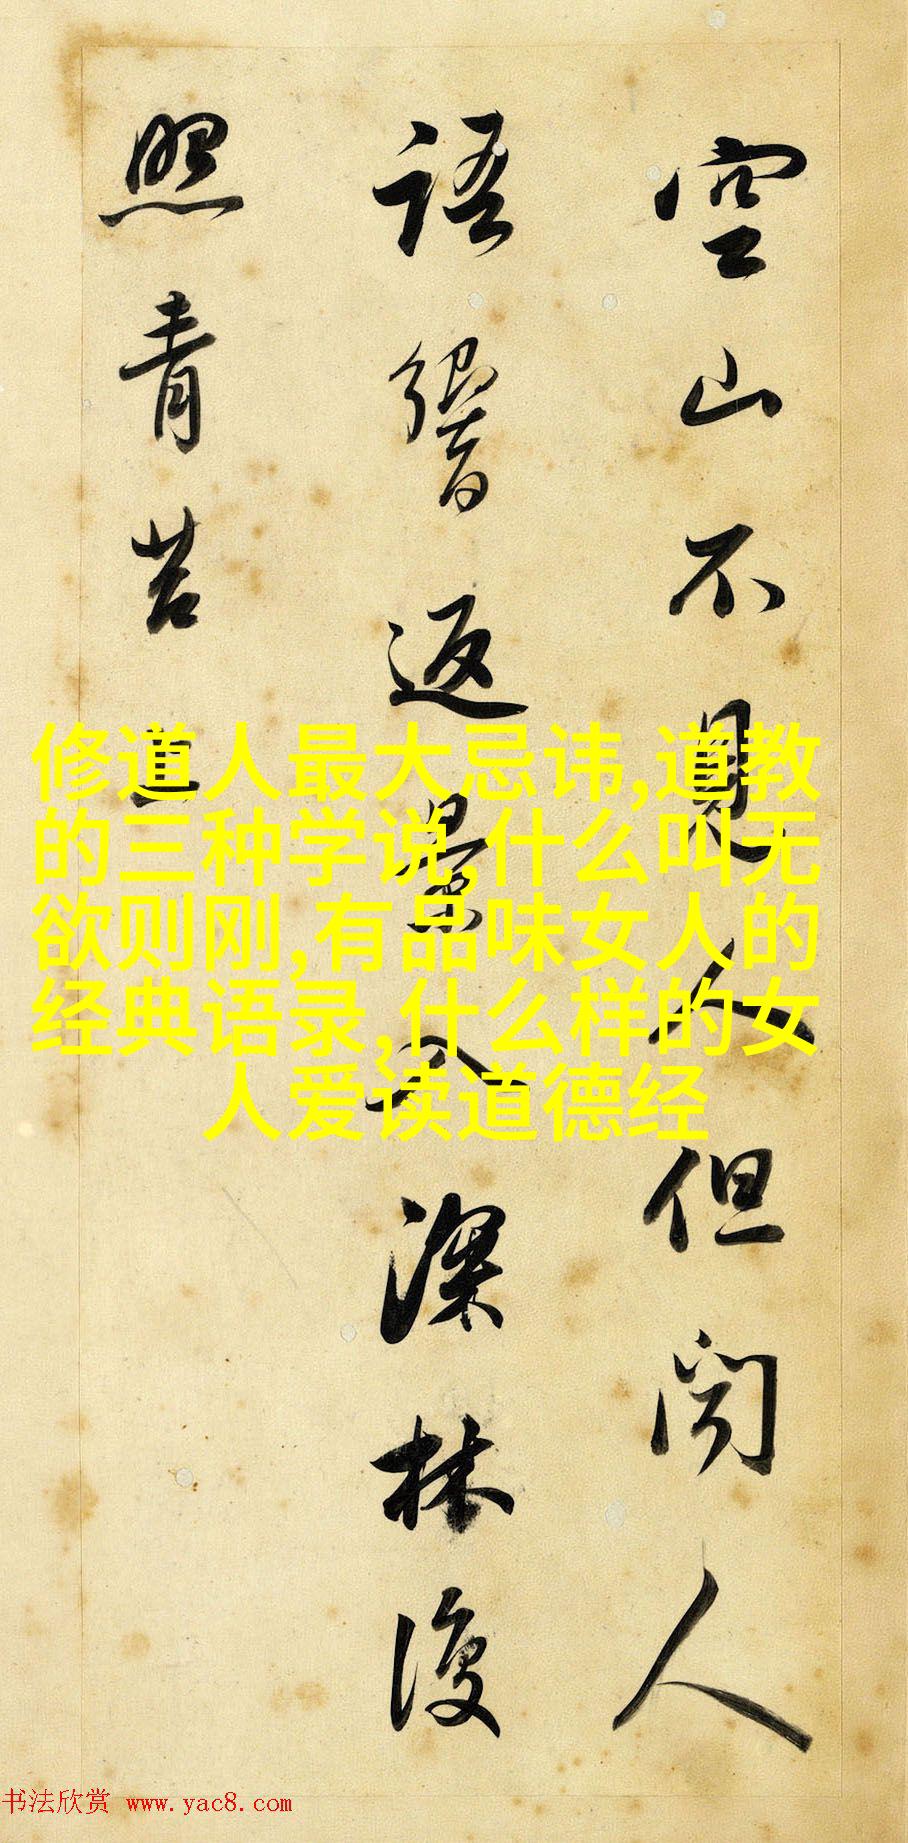 空山不見人但聞人
語響返景入深林復
照青苔上
修道人最大忌讳,道教
的三种学说,什么叫无
欲则刚,有品味女人的
经典语录,什么样的女
人爱读道德经
书法欣赏 www.yac8.com